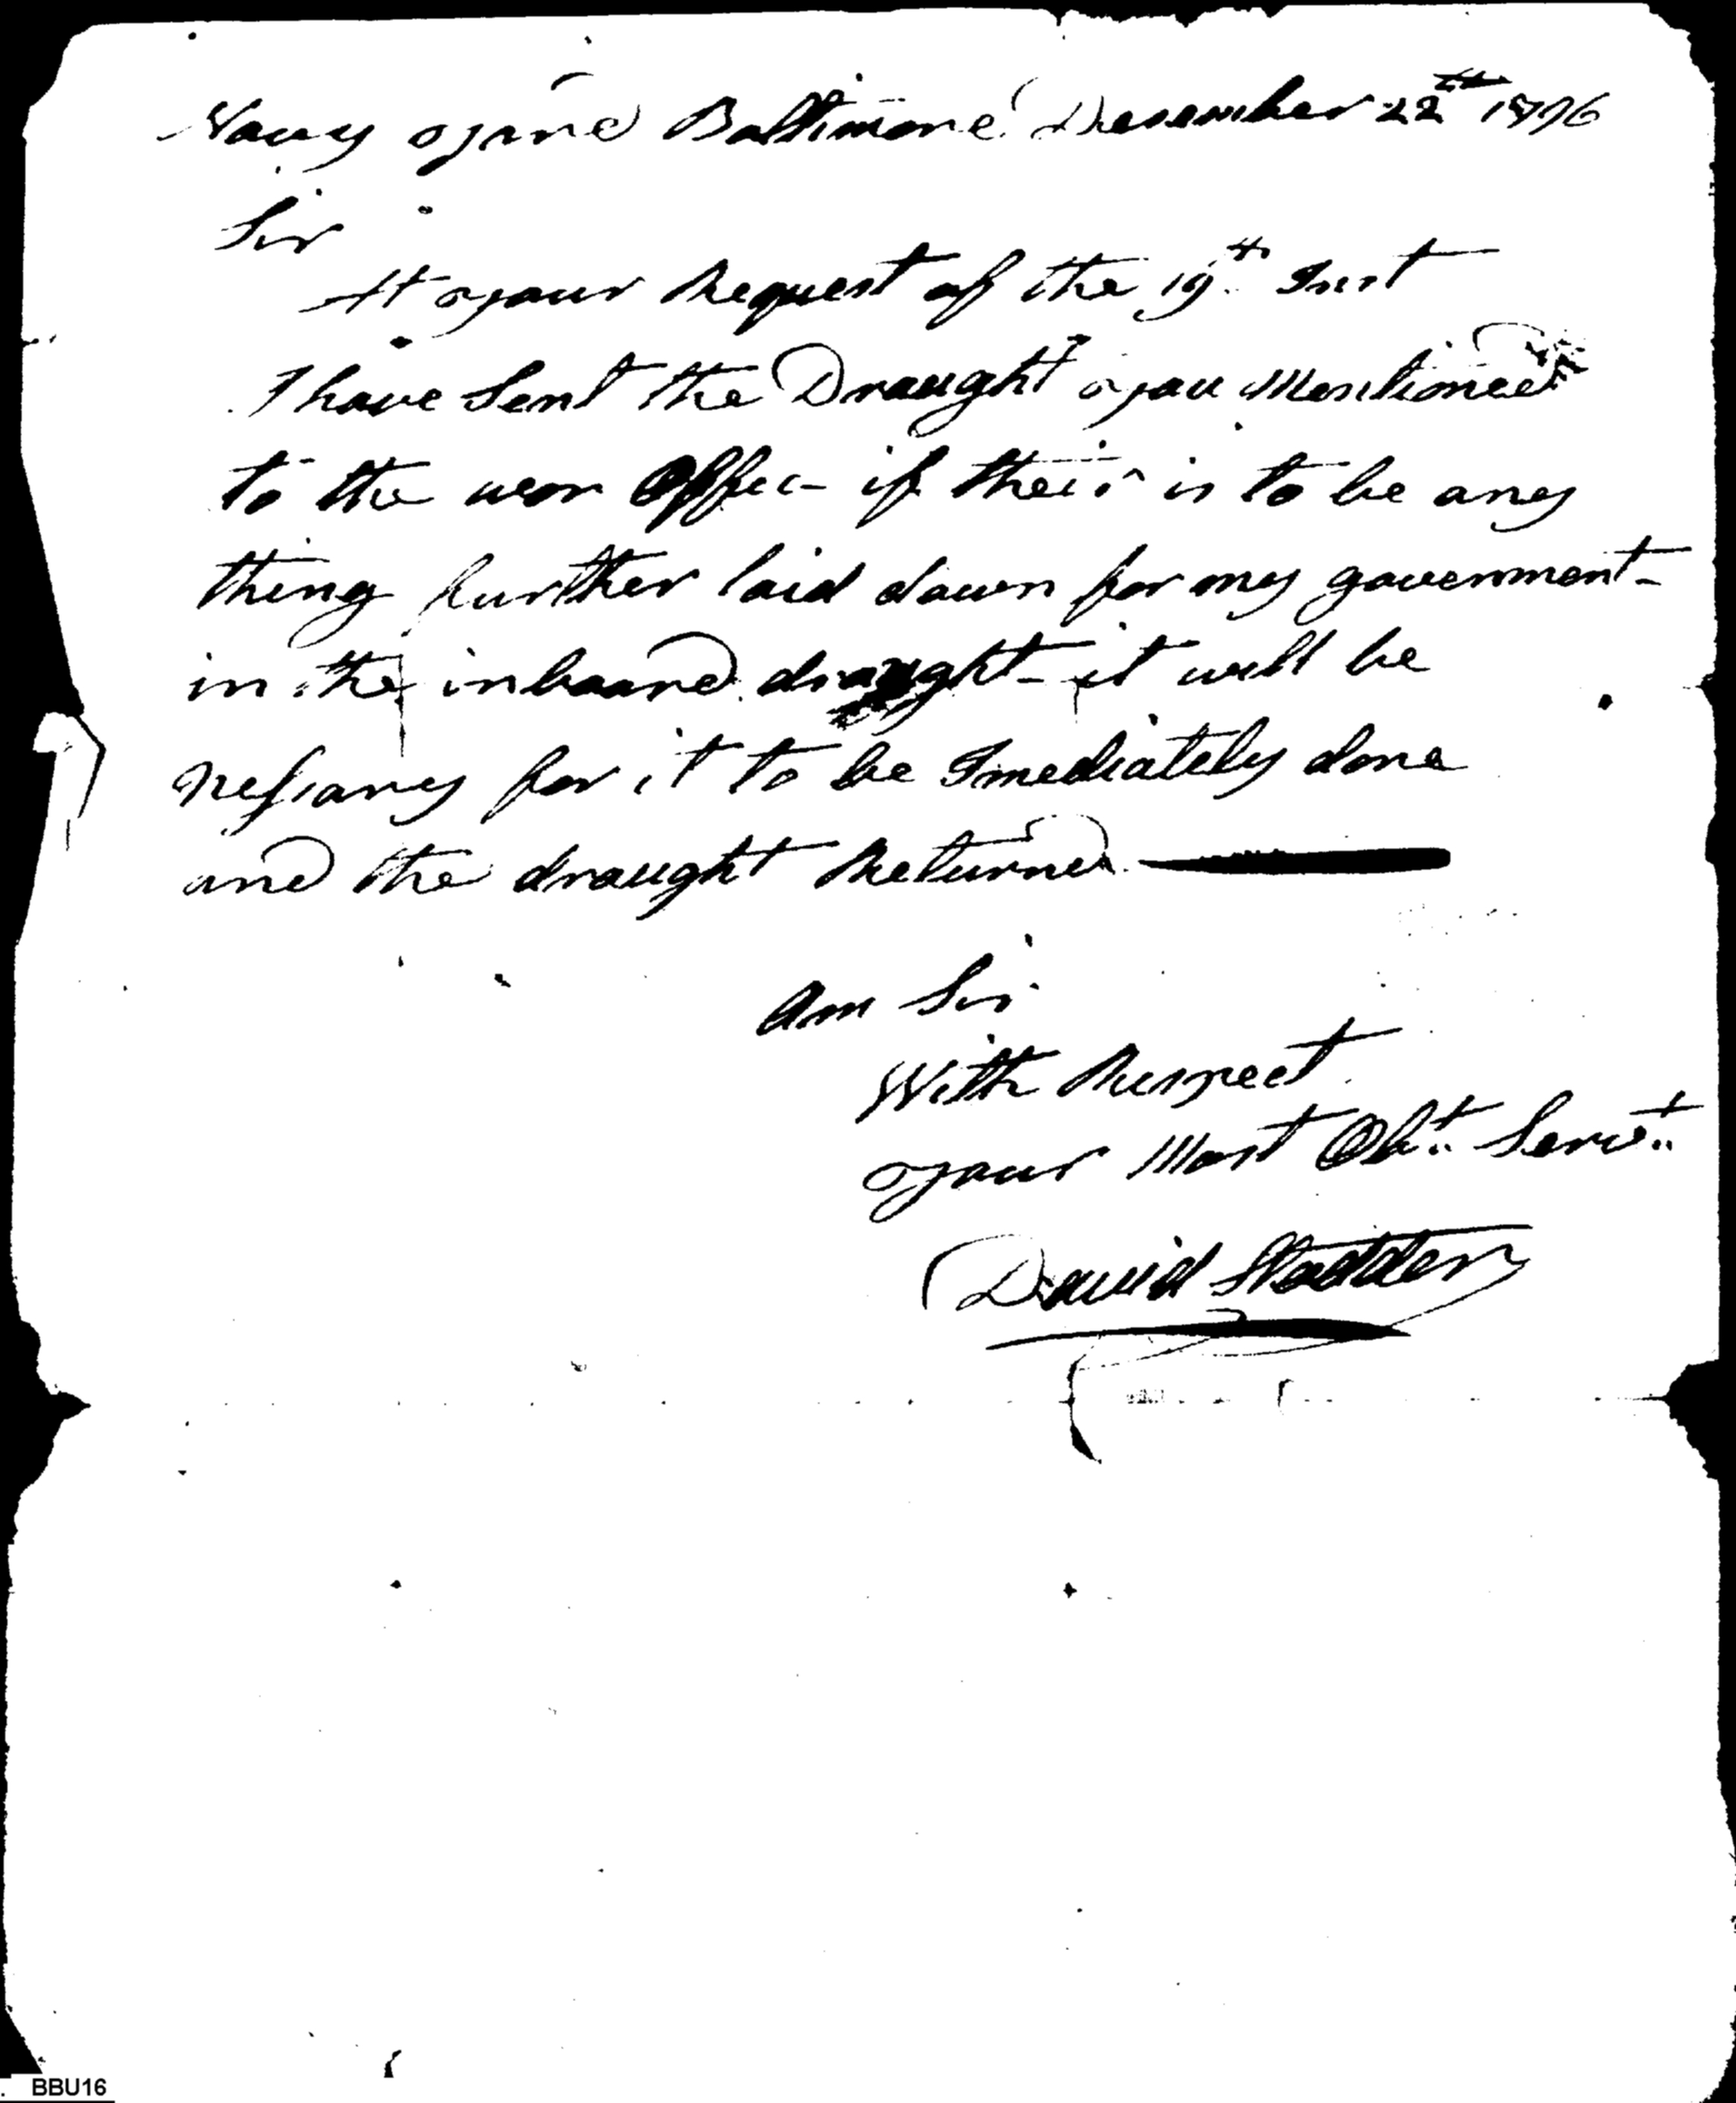 Navy yard Baltimore December 22th 1796
Sir
At your Request of the 19th Inst
I have Sent the Draught you Mentioned
to the wor Offec if their is to be any
thing further laid down for my government
in the inboard draught - it will be
nessary for it to be Imediately done
and the draught Returned
Am Sir
With Respect
your Most Obt. Servt.
David Stodder
BBU16